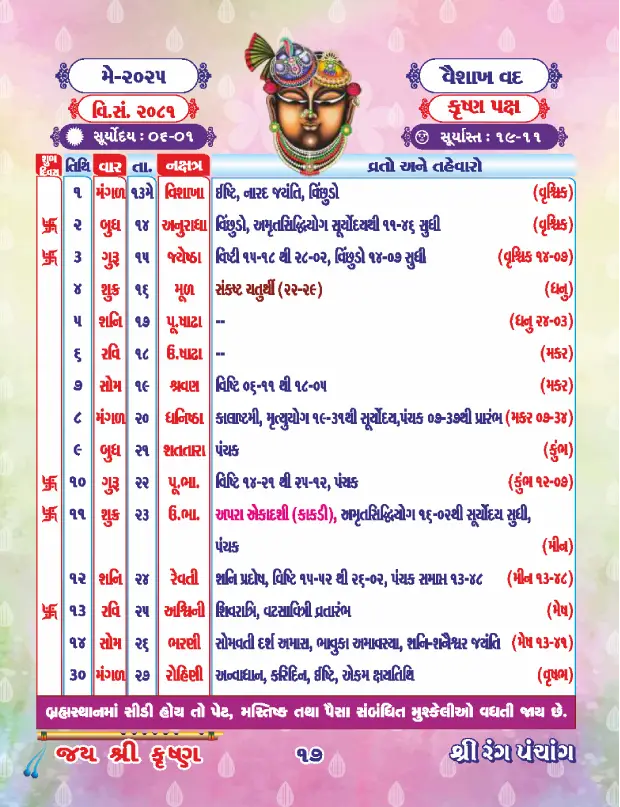 મે-૨૦૨૫ વૈશાખ વદ
વિ.સં. ૨૦૮૧ કૃષ્ણ પક્ષ
સૂર્યોદય : ૦૬-૦૧ સૂર્યાસ્ત : ૧૯-૧૧
શુભ દિવસ તિથિ વાર તા. નક્ષત્ર વ્રતો અને તહેવારો
૧ મંગળ ૧૩મે વિશાખા ઈષ્ટિ, નારદ જયંતિ, વિંછુડો (વૃશ્ચિક)
卐 ૨ બુધ ૧૪ અનુરાધા વિંછુડો, અમૃતસિદ્ધિયોગ સૂર્યોદયથી ૧૧-૪૬ સુધી (વૃશ્ચિક)
卐 ૩ ગુરૂ ૧૫ જ્યેષ્ઠા વિષ્ટી ૧૫-૧૮ થી ૨૮-૦૨, વિંછુડો ૧૪-૦૭ સુધી (વૃશ્ચિક ૧૪-૦૭)
૪ શુક્ર ૧૬ મૂળ સંકષ્ટ ચતુર્થી (૨૨-૨૯) (ધનુ)
૫ શનિ ૧૭ પૂ.ષાઢા -- (ધનુ ૨૪-૦૩)
૬ રવિ ૧૮ ઉ.ષાઢા -- (મકર)
૭ સોમ ૧૯ શ્રવણ વિષ્ટિ ૦૬-૧૧ થી ૧૮-૦૫ (મકર)
૮ મંગળ ૨૦ ધનિષ્ઠા કાલાષ્ટમી, મૃત્યુયોગ ૧૯-૩૧થી સૂર્યોદય,પંચક ૦૭-૩૭થી પ્રારંભ (મકર ૦૭-૩૪)
૯ બુધ ૨૧ શતતારા પંચક (કુંભ)
卐 ૧૦ ગુરૂ ૨૨ પૂ.ભા. વિષ્ટિ ૧૪-૨૧ થી ૨૫-૧૨, પંચક (કુંભ ૧૨-૦૭)
卐 ૧૧ શુક્ર ૨૩ ઉ.ભા. અપરા એકાદશી (કાકડી), અમૃતસિદ્ધિયોગ ૧૬-૦૨થી સૂર્યોદય સુધી,
પંચક (મીન)
૧૨ શનિ ૨૪ રેવતી શનિ પ્રદોષ, વિષ્ટિ ૧૫-૫૨ થી ૨૬-૦૨, પંચક સમાપ્ત ૧૩-૪૮ (મીન ૧૩-૪૮)
卐 ૧૩ રવિ ૨૫ અશ્વિની શિવરાત્રિ, વટસાવિત્રી વ્રતારંભ (મેષ)
૧૪ સોમ ૨૬ ભરણી સોમવતી દર્શ અમાસ, ભાવુકા અમાવસ્યા, શનિ-શનૈશ્વર જયંતિ (મેષ ૧૩-૪૧)
૩૦ મંગળ ૨૭ રોહિણી અન્વાધાન, કરિદિન, ઈષ્ટિ, એકમ ક્ષયતિથિ (વૃષભ)
બ્રહ્મસ્થાનમાં સીડી હોય તો પેટ, મસ્તિષ્ક તથા પૈસા સંબંધિત મુશ્કેલીઓ વધતી જાય છે.
જય શ્રી કૃષ્ણ ૧૭ શ્રી રંગ પંચાંગ